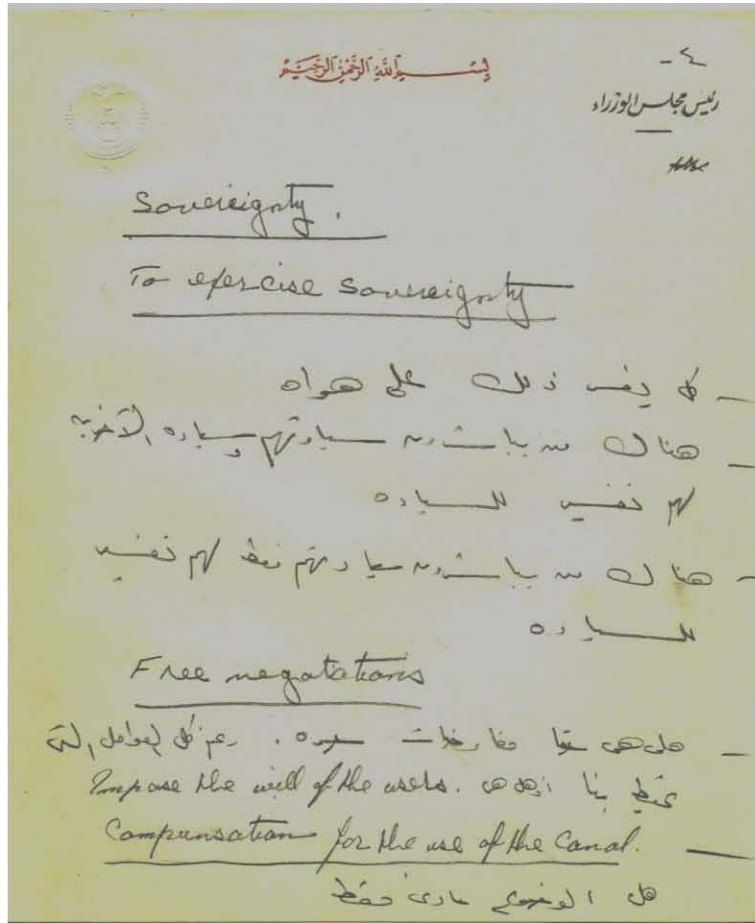 ٤-
بسم الله الرحمن الرحيم
رئيس مجلس الوزراء
Sovereignty.
To exercise Sovereignty
- كل يفسر ذلك على هواه
- هناك من يباشرون سيادتهم وسيادة الآخرين
لهم تفسير للسياده
- هناك من يباشرون سيادتهم فقط لهم تفسير
للسياده
Free negotations
- هل هى مفاوضات . رغم كل العوامل التى
تحيط بنا
Impose the will of the users.
Compensation for the use of the Canal. -
هل الموضوع مادى فقط